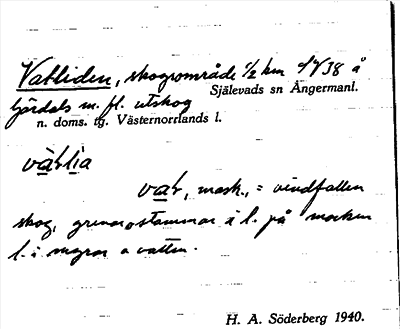 Vatliden, skogsområde ½ km SV 38 å
Själevads sn Ångermanl.
björdals m. fl. utskog
n. doms. tg. Västernorrlands l.
vàtlìa
vat, mask., = vindfallen
skog, grenar o stammar i l. på marken
l. i myrar o vatten.
H. A. Söderberg 1940.